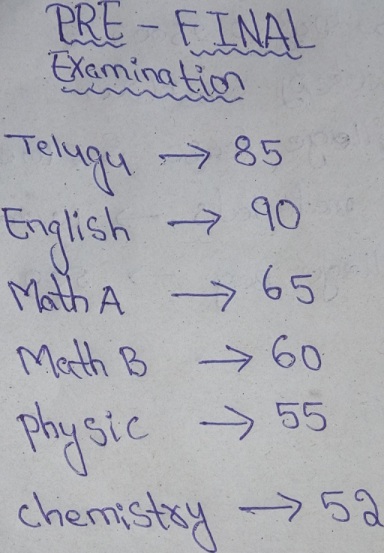 PRE - FINAL
Examination
Telugu → 85
English → 90
Math A → 65
Math B → 60
physic → 55
chemistry → 52